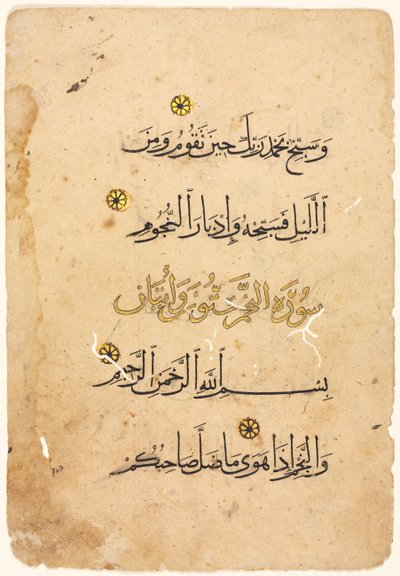 وَسَبِّحْ بِحَمْدِ رَبِّكَ حِينَ تَقُومُ وَمِنَ
ٱللَّيْلِ فَسَبِّحْهُ وَإِدْبَارَ ٱلنُّجُومِ
سُورَةُ النَّجْمِ سِتُّونَ وَاثْنَتَانِ
بِسْمِ ٱللَّهِ ٱلرَّحْمَٰنِ ٱلرَّحِيمِ
وَالنَّجْمِ إِذَا هَوَى مَا ضَلَّ صَاحِبُكُمْ